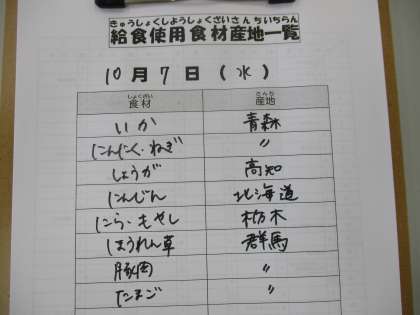 きゅうしょくしようしょくざいさんちいちらん
給食使用食材産地一覧
10月7日(水)
しょくざい さんち
食材 産地
いか 青森
にんにく・ねぎ 〃
しょうが 高知
にんじん 北海道
にら・もやし 栃木
ほうれん草 群馬
豚肉 〃
たまご 〃